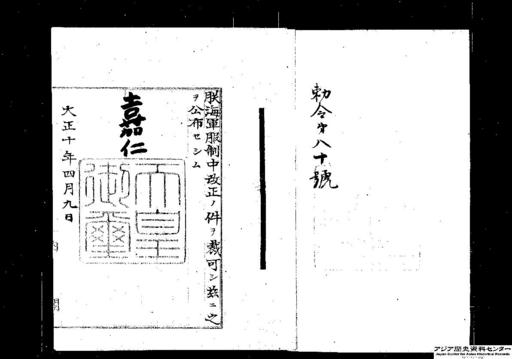 勅令第八十號
朕海軍服制中改正ノ件ヲ裁可シ茲ニ之
ヲ公布セシム
嘉仁
天皇
御璽
大正十年四月九日
アジア歴史資料センター
Japan Center for Asian Historical Records